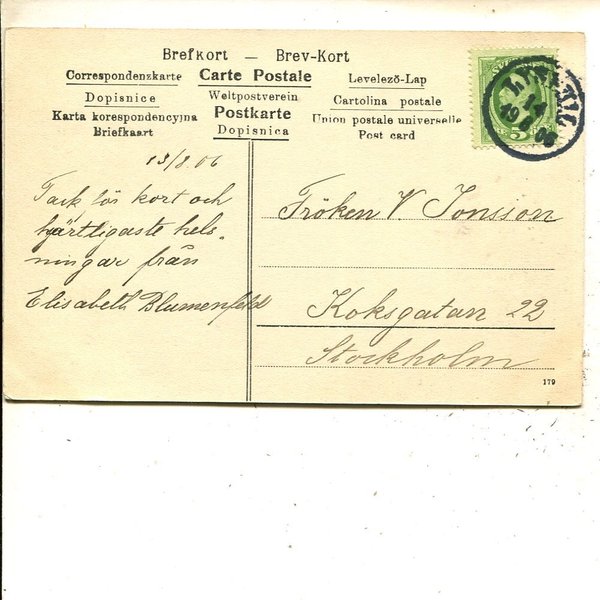 Brefkort — Brev-Kort
Correspondenzkarte Carte Postale Levelező-Lap
Dopisnice Weltpostverein Cartolina postale
Karta korespondencyjna Postkarte Union postale universelle
Briefkaart Dopisnica Post card
13/8.06
Tack för kort och
hjärtligaste hels-
ningar från
Elisabeth Blumenfeld
Fröken V. Jonsson
Koksgatan 22
Stockholm
5
14
179